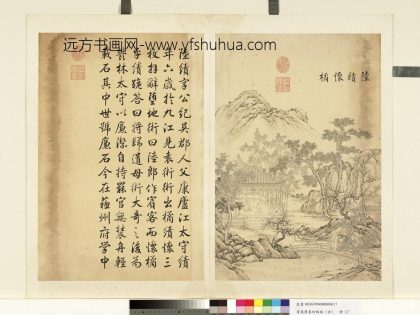 远方书画网 - www.yfshuhua.com
陸績懷橘
陸績字公紀吳郡人父康廬江太守績
年六歲於九江見袁術術出橘績懷三
枚拜辭墮地術曰陸郎作賓客而懷橘
乎績跪答曰將歸遺母術大奇之後為
鬱林太守以廉潔自持罷官無裝舟輕
載石其中世號廉石今在蘇州府學中